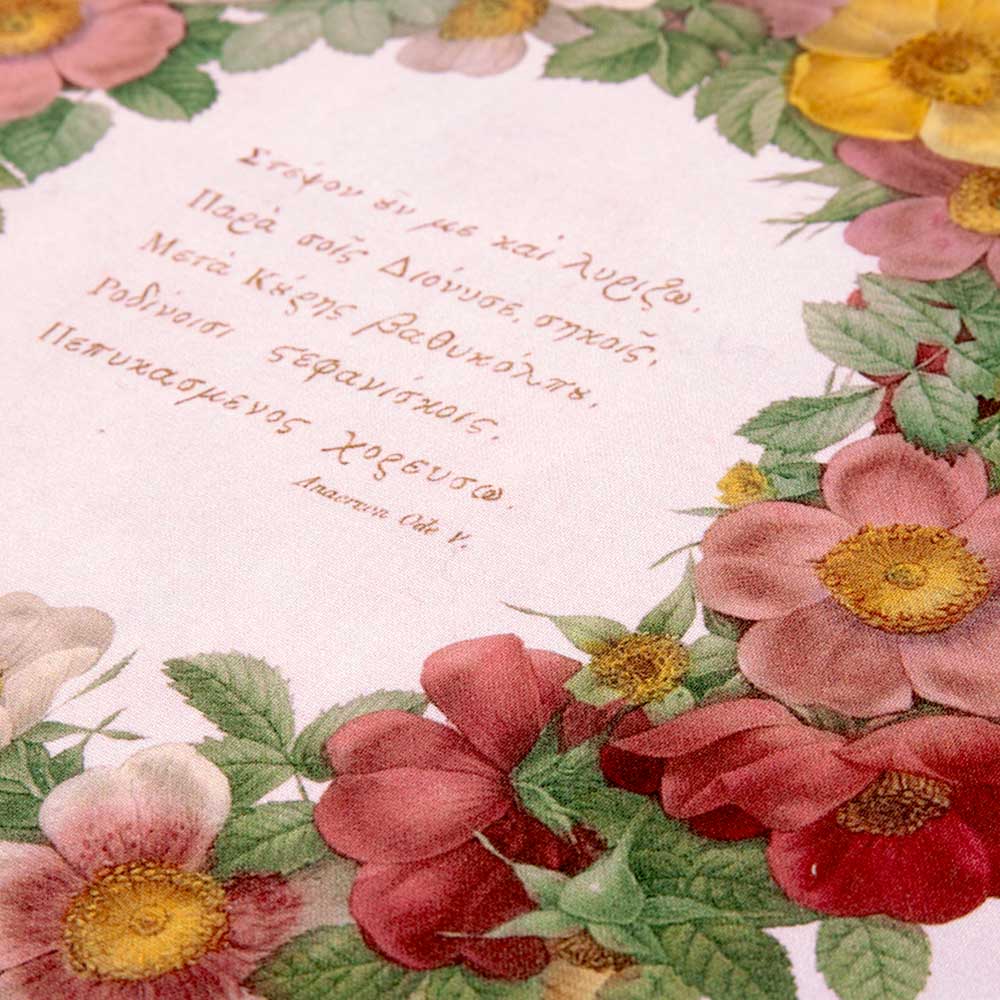 Στέψον ȣ̓͂ν με καὶ λυρίζω,
Παρὰ σοῖς Διόνυσε, σηκοῖς,
Μετὰ Κȣ́ρης βαθυκόλπȣ,
Ροδίνοισι ϛεφανίσκοις,
Πεπυκασμένος χορευσω.
Anacreon Ode V.